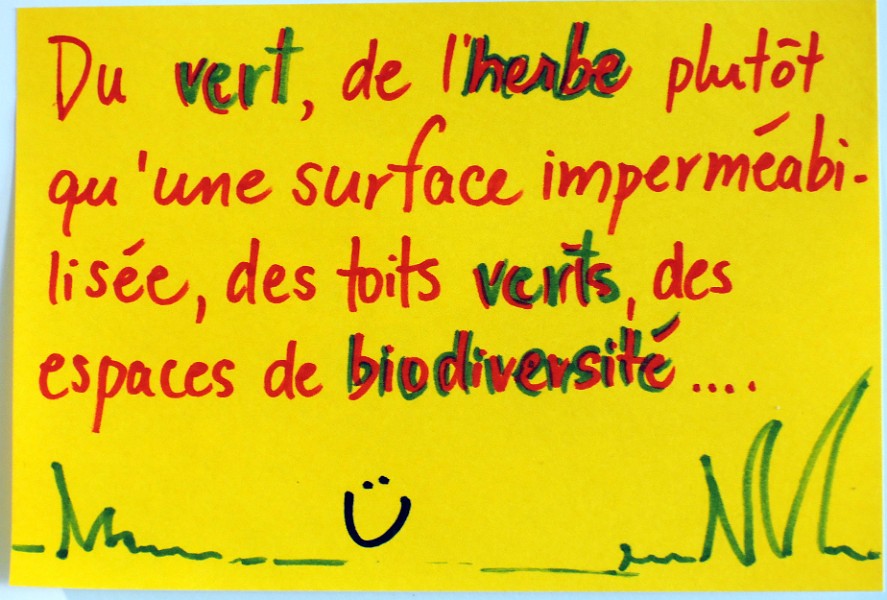 Du vert, de l'herbe plutôt
qu'une surface imperméabi-
lisée, des toits verts, des
espaces de biodiversité....